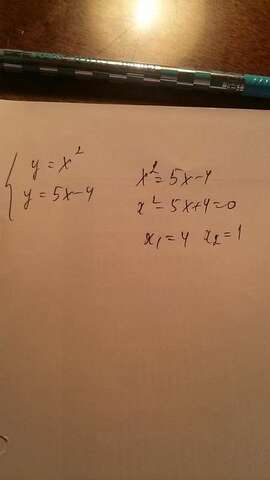 { y = x²
y = 5x - 4
x² = 5x - 4
x² - 5x + 4 = 0
x₁ = 4 x₂ = 1